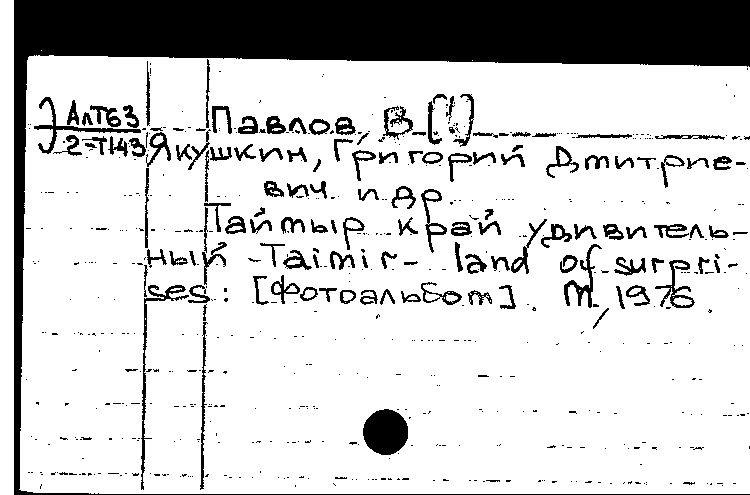 АлТ63 Павлов, В
2-Т143 Якушкин, Григорий Дмитрие-
вич и др.
Таймыр край удивитель-
ный -Taimir- land of surpri-
ses: [фотоальбом]. М, 1976.